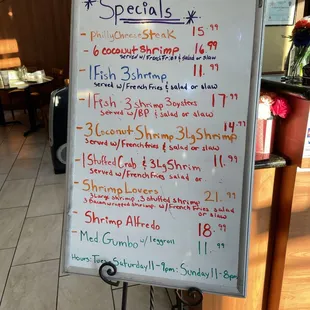 *Specials*
- Philly Cheese Steak 15.99
- 6 coconut Shrimp 16.99
Served w/French Fries & salad or slaw
- 1 Fish 3 shrimp 11.99
w/french fries & salad or slaw
- 1 Fish 3 shrimp 3 oysters 17.99
served w/BP & salad or slaw
- 3 Coconut Shrimp 3 Lg Shrimp 14.99
Served w/french fries & salad or slaw
- 1 Stuffed Crab & 3 Lg Shrim 11.99
Served w/French Fries salad or
- Shrimp Lovers 21.99
3 large shrimp, 3 stuffed shrimp
3 bacon wrapped shrimp w/french fries salad
or slaw
- Shrimp Alfredo 18.99
- Med. Gumbo w/1 eggroll 11.99
Hours: Tues-Saturday 11-9pm: Sunday 11-8pm